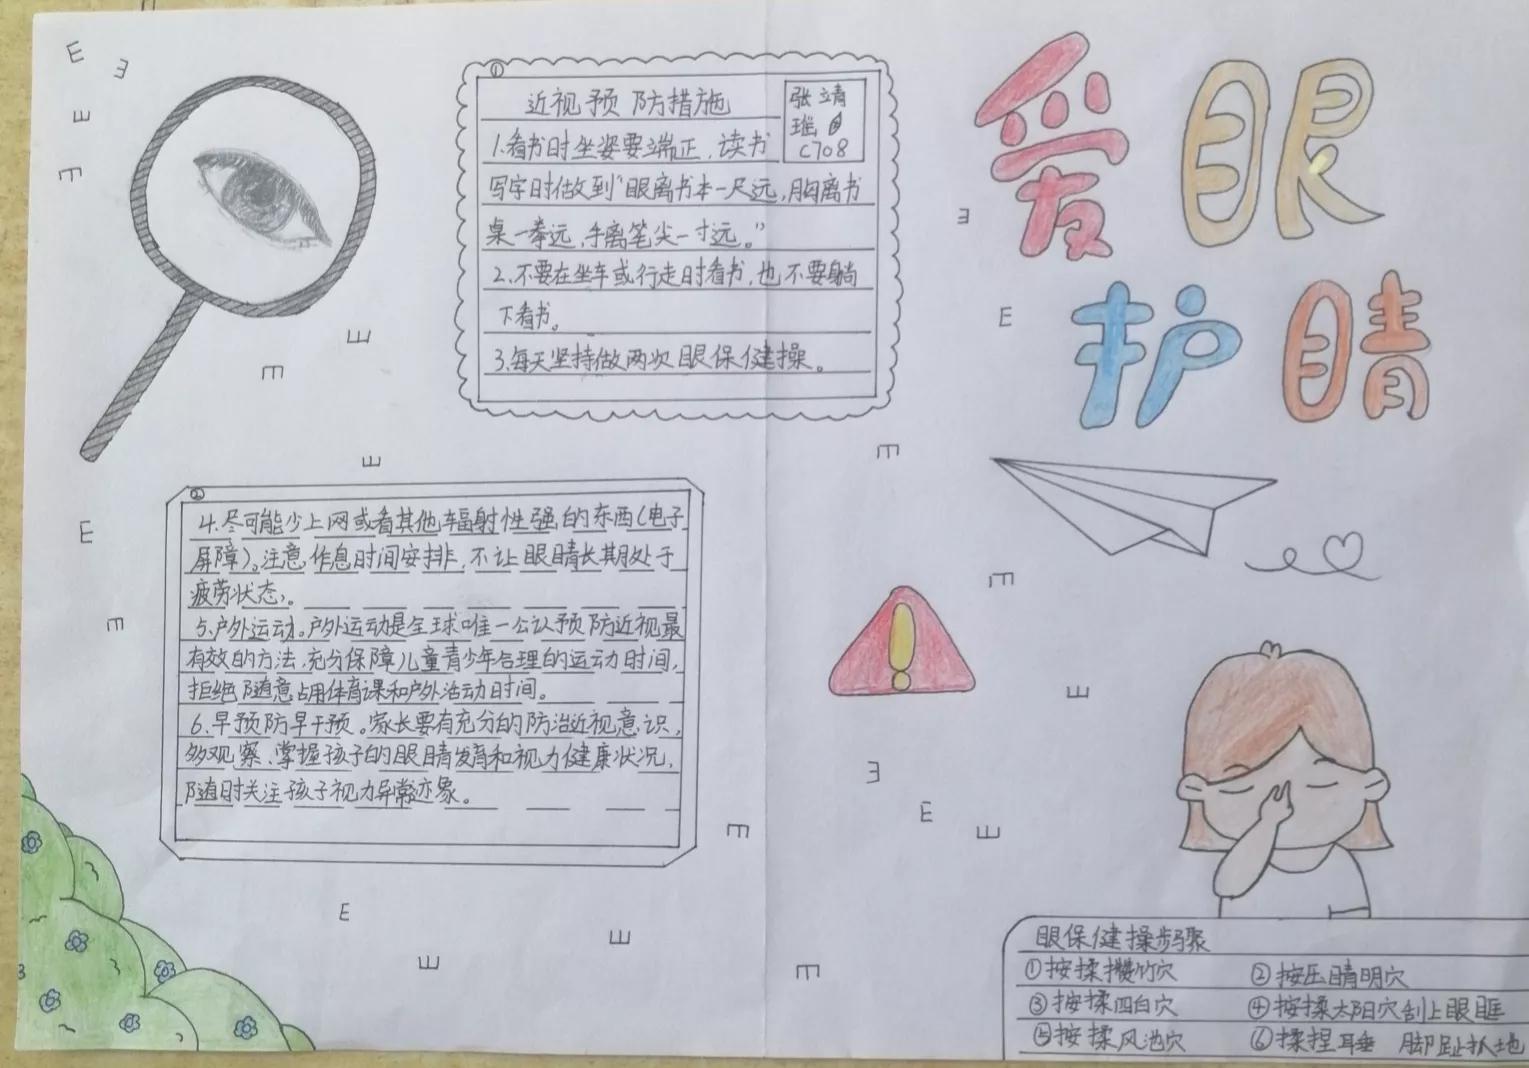 爱眼
护睛
①
近视预防措施
张靖
瑶
C708
1.看书时坐姿要端正，读书
写字时做到“眼离书本一尺远，胸离书
桌一拳远，手离笔尖一寸远。”
2.不要在坐车或行走时看书，也不要躺
下看书。
3.每天坚持做两次眼保健操。
②
4.尽可能少上网或看其他辐射性强的东西（电子
屏障）。注意作息时间安排，不让眼睛长期处于
疲劳状态。
5.户外运动。户外运动是全球唯一公认预防近视最
有效的方法，充分保障儿童青少年合理的运动时间，
拒绝随意占用体育课和户外活动时间。
6.早预防早干预。家长要有充分的防治近视意识，
多观察、掌握孩子的眼睛发育和视力健康状况，
随时关注孩子视力异常迹象。
眼保健操步骤
①按揉攒竹穴 ②按压睛明穴
③按揉四白穴 ④按揉太阳穴刮上眼眶
⑤按揉风池穴 ⑥揉捏耳垂 脚趾抓地